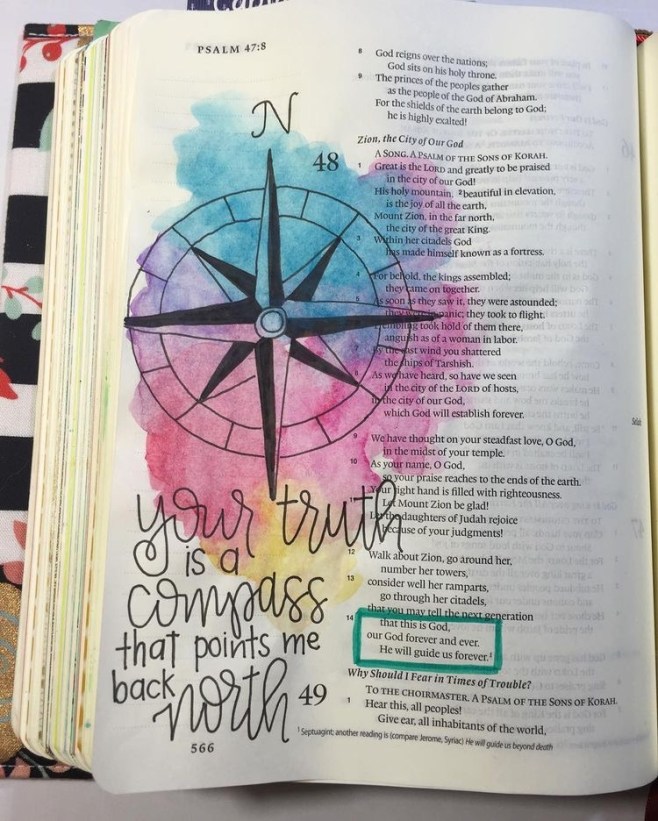 PSALM 47:8
8 God reigns over the nations;
God sits on his holy throne.
9 The princes of the peoples gather
as the people of the God of Abraham.
For the shields of the earth belong to God;
he is highly exalted!
Zion, the City of Our God
48 A SONG. A PSALM OF THE SONS OF KORAH.
1 Great is the LORD and greatly to be praised
in the city of our God!
His holy mountain, 2 beautiful in elevation,
is the joy of all the earth,
Mount Zion, in the far north,
the city of the great King.
3 Within her citadels God
has made himself known as a fortress.
4 For behold, the kings assembled;
they came on together.
5 As soon as they saw it, they were astounded;
they were in panic; they took to flight.
trembling took hold of them there,
anguish as of a woman in labor.
7 By the east wind you shattered
the ships of Tarshish.
8 As we have heard, so have we seen
in the city of the LORD of hosts,
in the city of our God,
which God will establish forever.
Selah
9 We have thought on your steadfast love, O God,
in the midst of your temple.
10 As your name, O God,
so your praise reaches to the ends of the earth.
Your right hand is filled with righteousness.
Let Mount Zion be glad!
Let the daughters of Judah rejoice
because of your judgments!
12 Walk about Zion, go around her,
number her towers,
13 consider well her ramparts,
go through her citadels,
that you may tell the next generation
14 that this is God,
our God forever and ever.
He will guide us forever.1
Why Should I Fear in Times of Trouble?
49 TO THE CHOIRMASTER. A PSALM OF THE SONS OF KORAH.
1 Hear this, all peoples!
Give ear, all inhabitants of the world,
1 Septuagint; another reading is (compare Jerome, Syriac) He will guide us beyond death
566
N
your truth
is a
compass
that points me
back
north